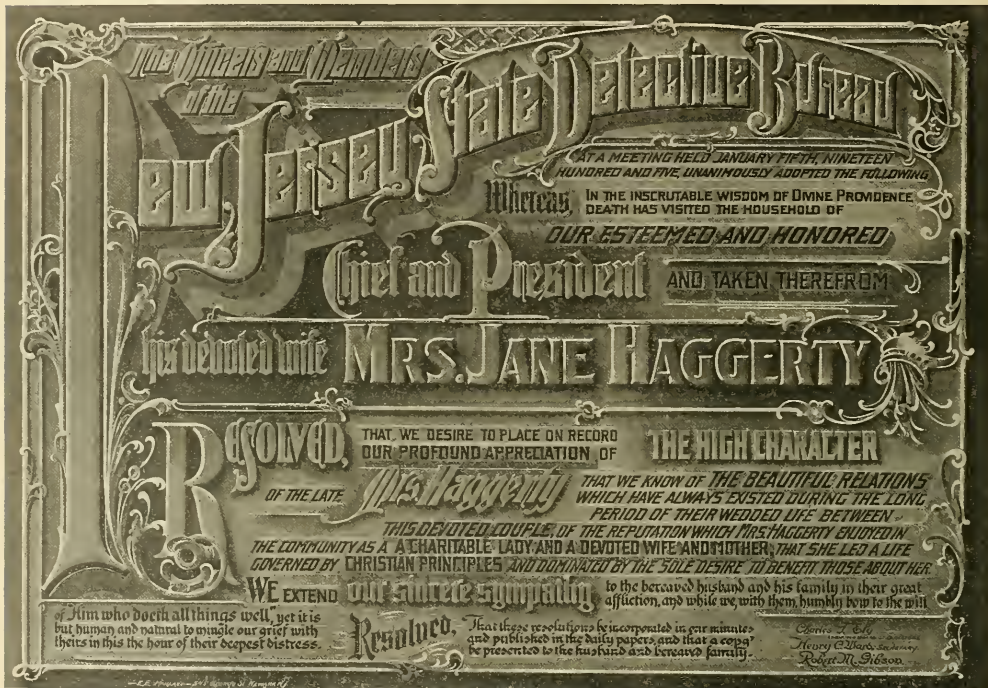 The Officers and Members
of the
New Jersey State Detective Bureau
AT A MEETING HELD JANUARY FIFTH, NINETEEN
HUNDRED AND FIVE, UNANIMOUSLY ADOPTED THE FOLLOWING
Whereas, IN THE INSCRUTABLE WISDOM OF DIVINE PROVIDENCE
DEATH HAS VISITED THE HOUSEHOLD OF
OUR ESTEEMED AND HONORED
Chief and President AND TAKEN THEREFROM
his devoted wife MRS. JANE HAGGERTY
RESOLVED, THAT, WE DESIRE TO PLACE ON RECORD
OUR PROFOUND APPRECIATION OF THE HIGH CHARACTER
OF THE LATE Mrs Haggerty THAT WE KNOW OF THE BEAUTIFUL RELATIONS
WHICH HAVE ALWAYS EXISTED DURING THE LONG
PERIOD OF THEIR WEDDED LIFE BETWEEN
THIS DEVOTED COUPLE, OF THE REPUTATION WHICH MRS. HAGGERTY ENJOYED IN
THE COMMUNITY AS A A CHARITABLE LADY AND A DEVOTED WIFE AND MOTHER; THAT SHE LED A LIFE
GOVERNED BY CHRISTIAN PRINCIPLES AND DOMINATED BY THE SOLE DESIRE TO BENEFIT THOSE ABOUT HER.
WE EXTEND our sincere sympathy to the bereaved husband and his family in their great
affliction, and while we, with them, humbly bow to the will
of Him who doeth all things well, yet it is
but human and natural to mingle our grief with
theirs in this the hour of their deepest distress.
Resolved, That these resolutions be incorporated in our minutes
and published in the daily papers, and that a copy
be presented to the husband and bereaved family.
Charles J.
Henry C. Ward Secretary
Robert M. Gibson